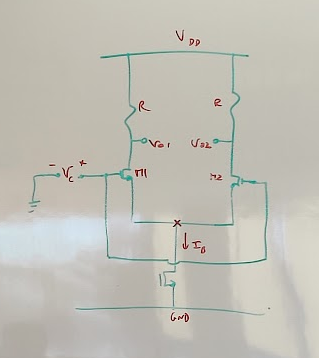 V_DD
R
R
V_o1
V_o2
- V_c +
M1
M2
I_0
GND